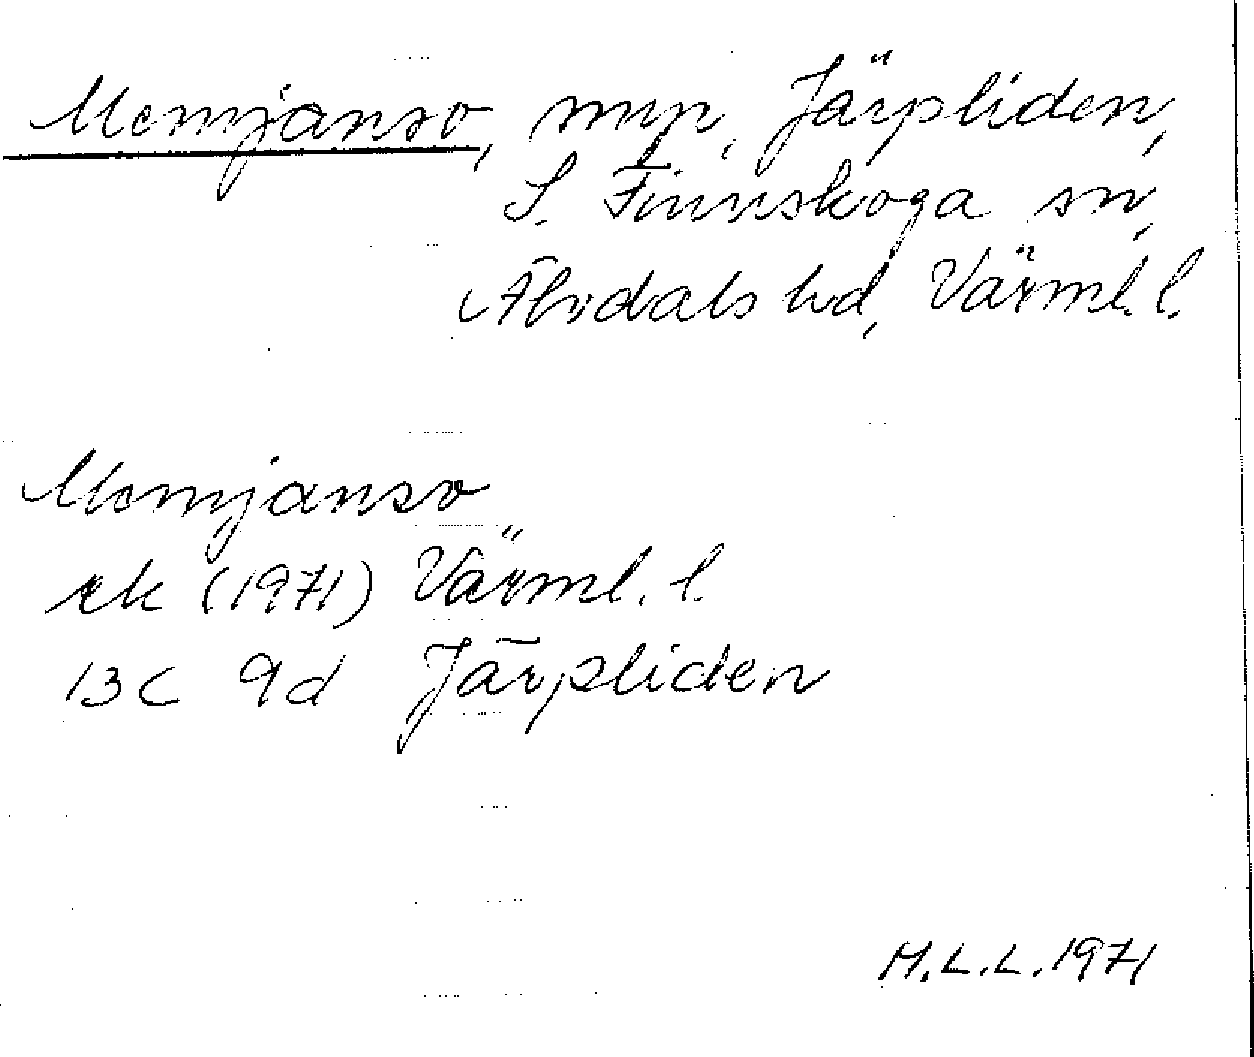 Memjanso, myr, Järpliden,
S. Finnskoga sn,
Älvdals hd, Värml. l.
Memjanso
ek (1971) Värml. l.
13C 9d Järpliden
M.L.L. 1971